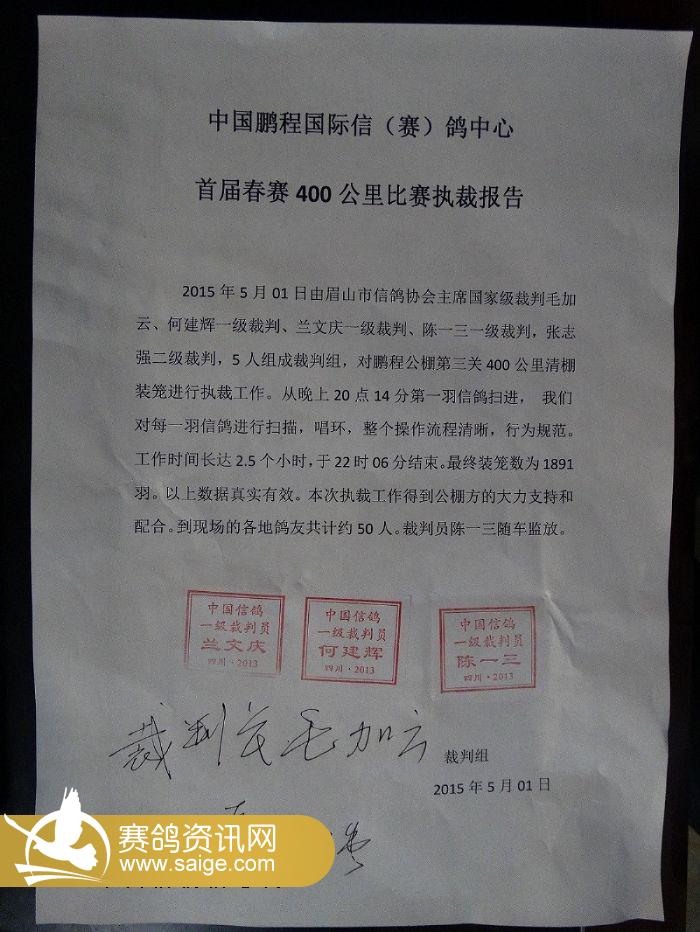 中国鹏程国际信（赛）鸽中心
首届春赛 400 公里比赛执裁报告
2015 年 5 月 01 日由眉山市信鸽协会主席国家级裁判毛加
云、何建辉一级裁判、兰文庆一级裁判、陈一三一级裁判，张志
强二级裁判，5 人组成裁判组，对鹏程公棚第三关 400 公里清棚
装笼进行执裁工作。从晚上 20 点 14 分第一羽信鸽扫进， 我们
对每一羽信鸽进行扫描，唱环，整个操作流程清晰，行为规范。
工作时间长达 2.5 个小时，于 22 时 06 分结束。最终装笼数为 1891
羽。以上数据真实有效。本次执裁工作得到公棚方的大力支持和
配合。到现场的各地鸽友共计约 50 人。裁判员陈一三随车监放。
中国信鸽
一级裁判员
兰文庆
四川·2013
中国信鸽
一级裁判员
何建辉
四川·2013
中国信鸽
一级裁判员
陈一三
四川·2013
裁判长毛加云
裁判组
2015 年 5 月 01 日
赛鸽资讯网
www.saige.com